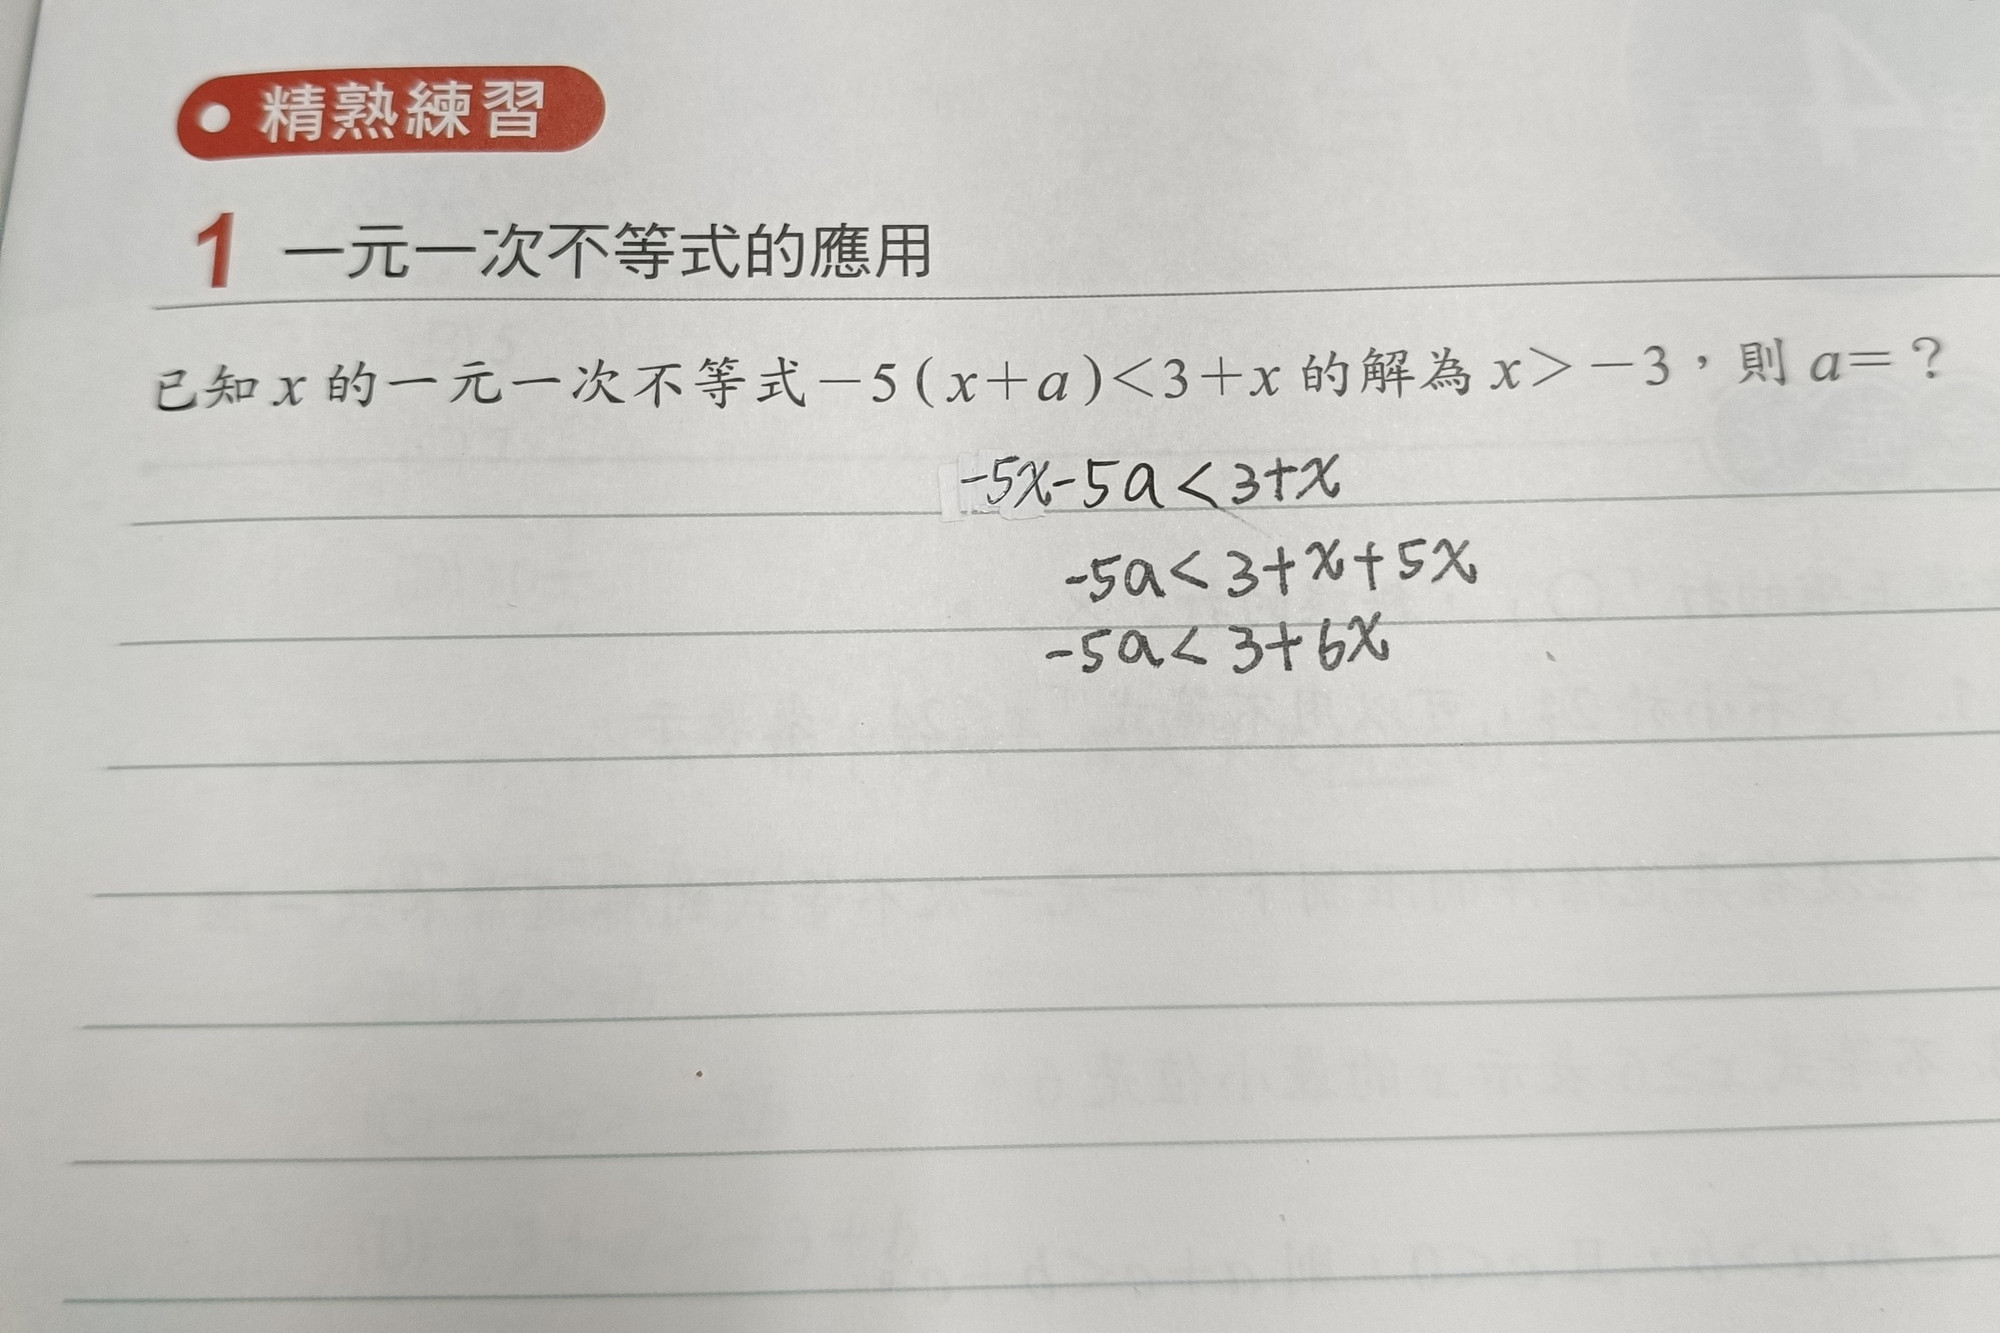 精熟練習
1 一元一次不等式的應用
已知x的一元一次不等式－5(x＋a)＜3＋x的解為x＞－3，則a＝？
-5x-5a<3+x
-5a<3+x+5x
-5a<3+6x